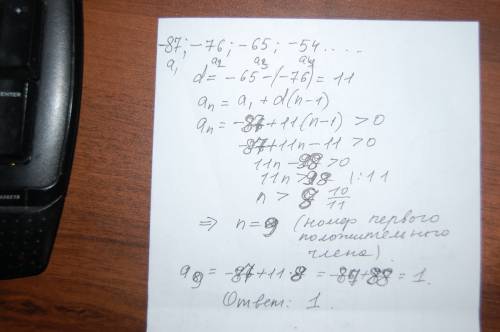 -87; -76; -65; -54....
a₁ a₂ a₃ a₄
d = -65 - (-76) = 11
aₙ = a₁ + d(n-1)
aₙ = -87 + 11(n-1) > 0
-87 + 11n - 11 > 0
11n - 98 > 0
11n > 98 |:11
n > 8 10/11
⇒ n = 9 (номер первого
положительного
члена)
a₉ = -87 + 11·8 = -87 + 88 = 1.
Ответ: 1.
ENTER